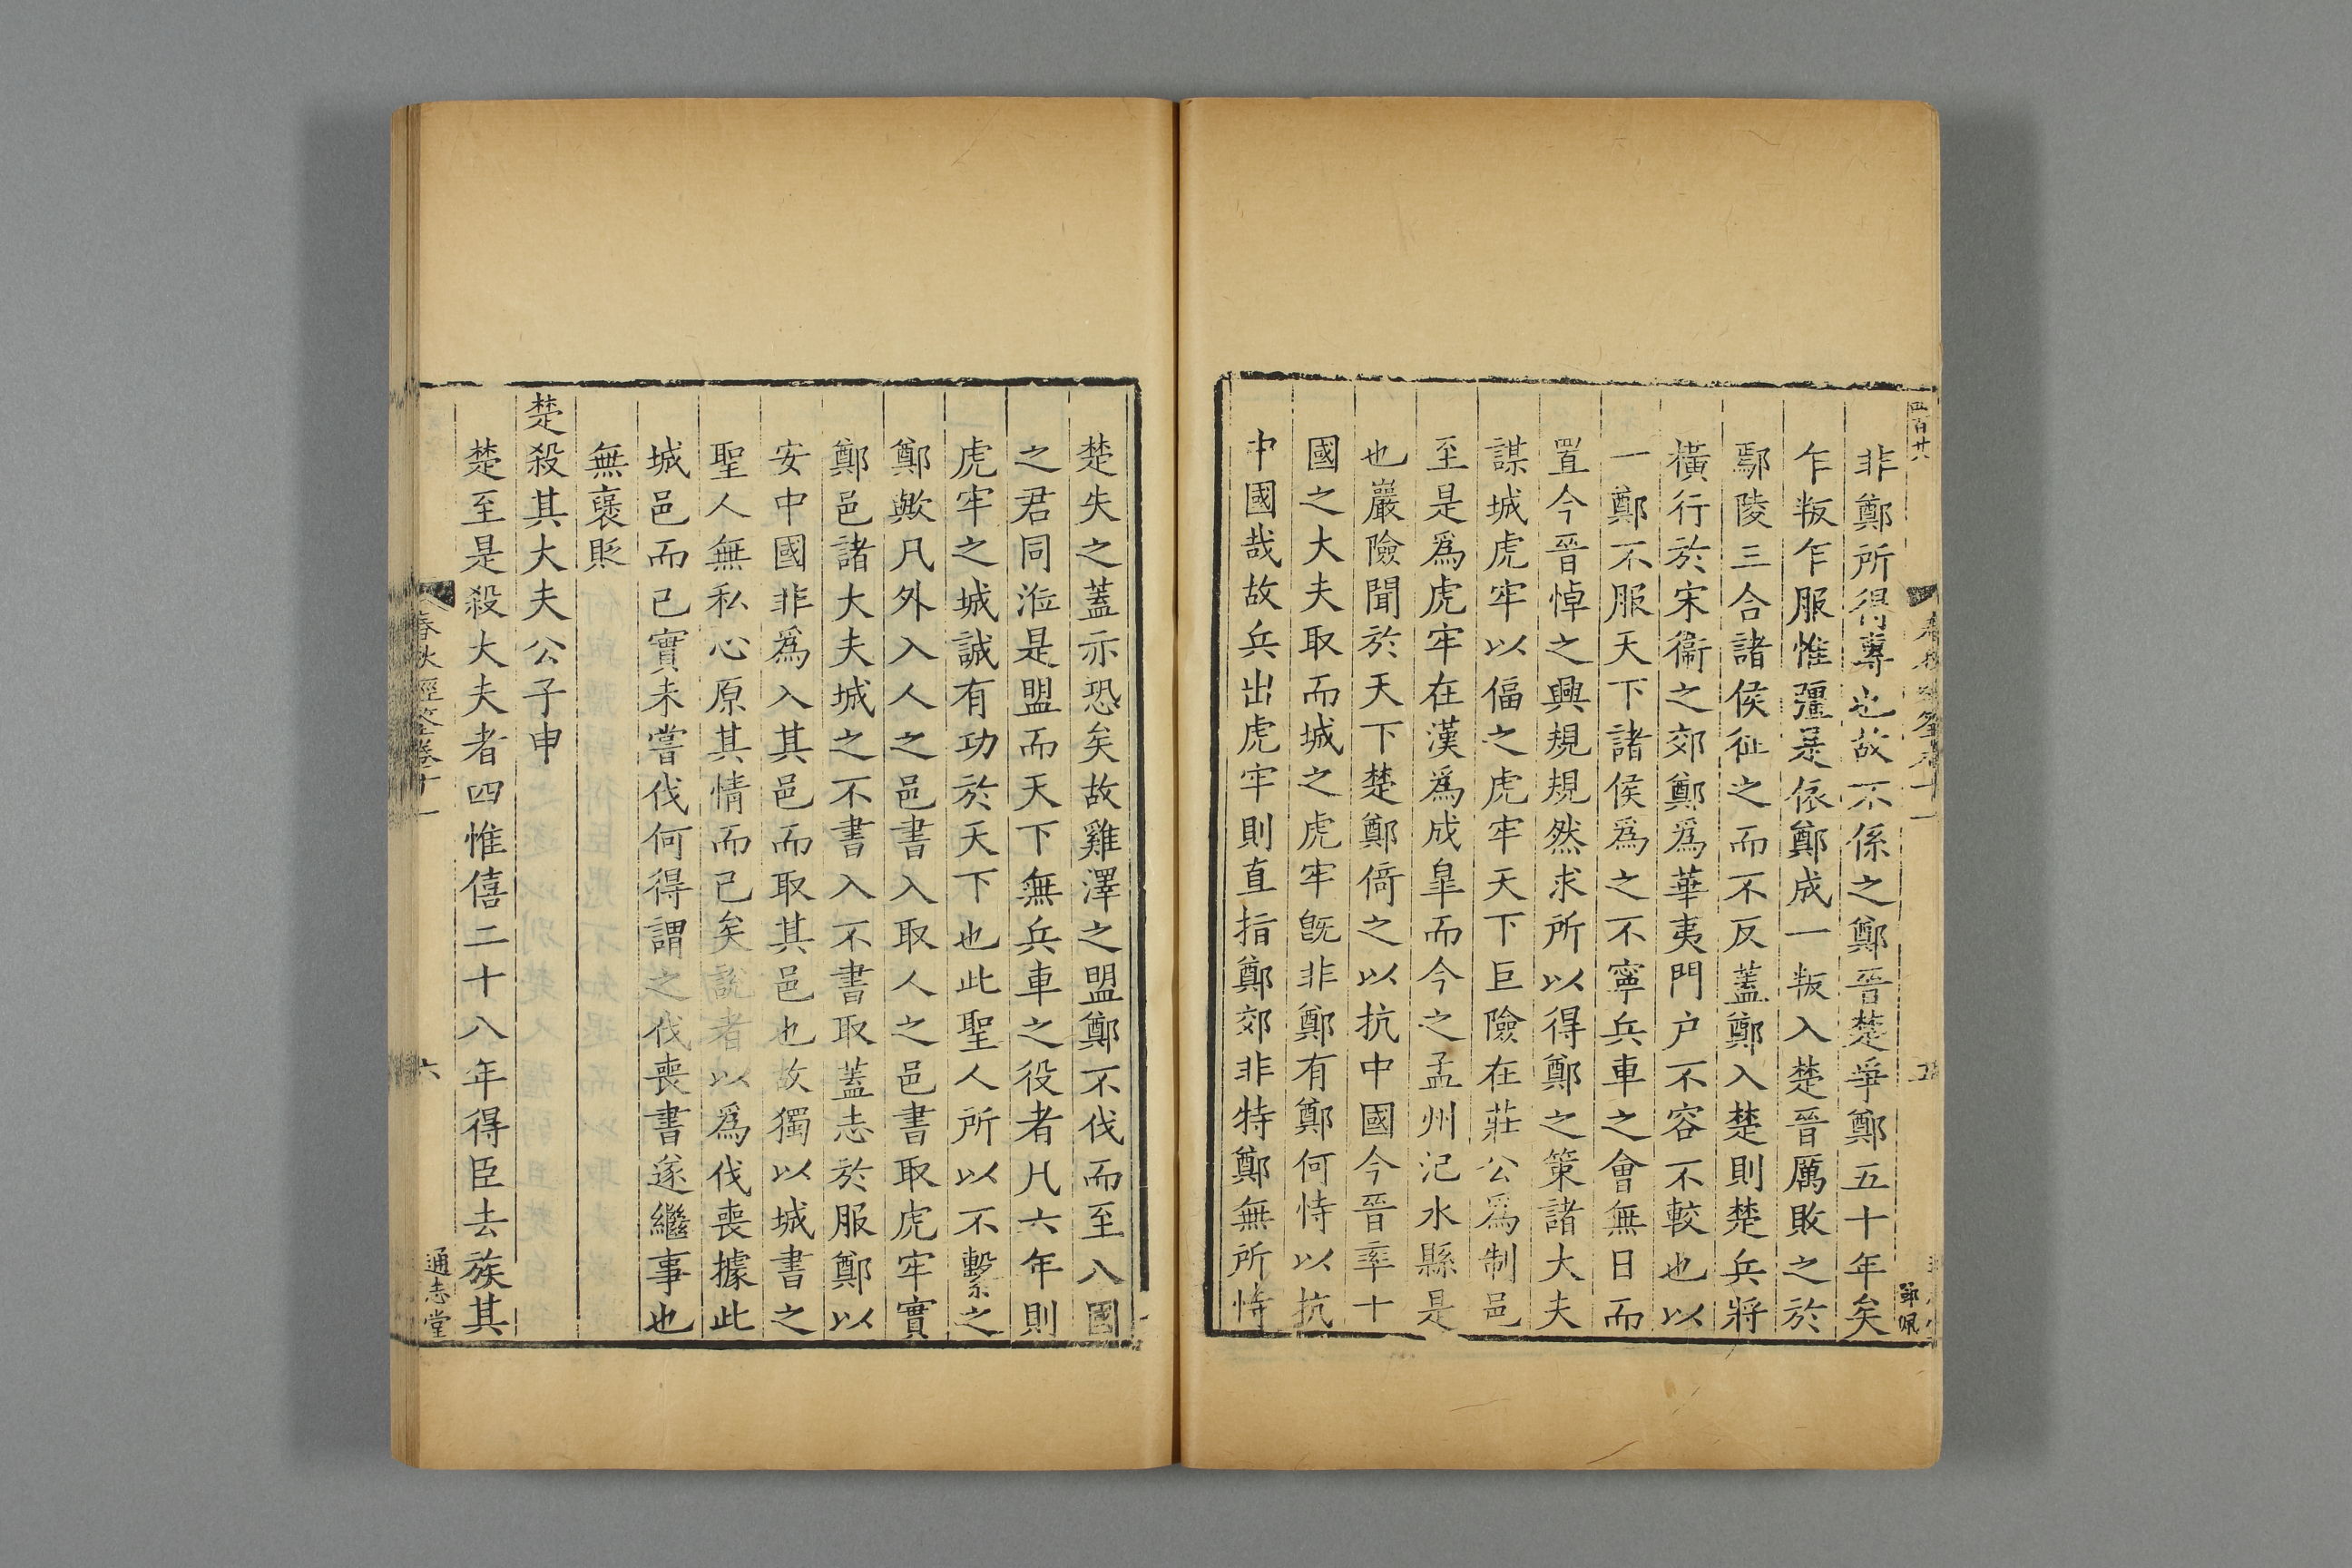 四百廿八
非鄭所得專也故不係之鄭晉楚爭鄭五十年矣
乍叛乍服惟彊是依鄭成一叛入楚晉厲敗之於
鄢陵三合諸侯征之而不反蓋鄭入楚則楚兵將
橫行於宋衞之郊鄭爲華夷門户不容不較也以
一鄭不服天下諸侯爲之不寧兵車之會無日而
置今晉悼之興規規然求所以得鄭之策諸大夫
謀城虎牢以偪之虎牢天下巨險在莊公爲制邑
至是爲虎牢在漢爲成臯而今之孟州汜水縣是
也巖險聞於天下楚鄭倚之以抗中國今晉率十
國之大夫取而城之虎牢旣非鄭有鄭何恃以抗
中國哉故兵出虎牢則直指鄭郊非特鄭無所恃
楚失之蓋示恐矣故雞澤之盟鄭不伐而至八國
之君同涖是盟而天下無兵車之役者凡六年則
虎牢之城誠有功於天下也此聖人所以不繫之
鄭歟凡外入人之邑書入取人之邑書取虎牢實
鄭邑諸大夫城之不書入不書取蓋志於服鄭以
安中國非爲入其邑而取其邑也故獨以城書之
聖人無私心原其情而已矣說者以爲伐喪據此
城邑而已實未嘗伐何得謂之伐喪書遂繼事也
無褒貶
楚殺其大夫公子申
楚至是殺大夫者四惟僖二十八年得臣去族其
春秋經筌卷十一
六
通志堂